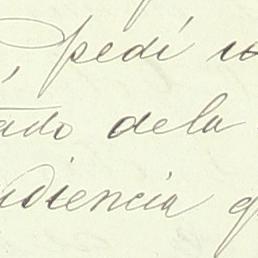 , pedí
ado dela
udiencia